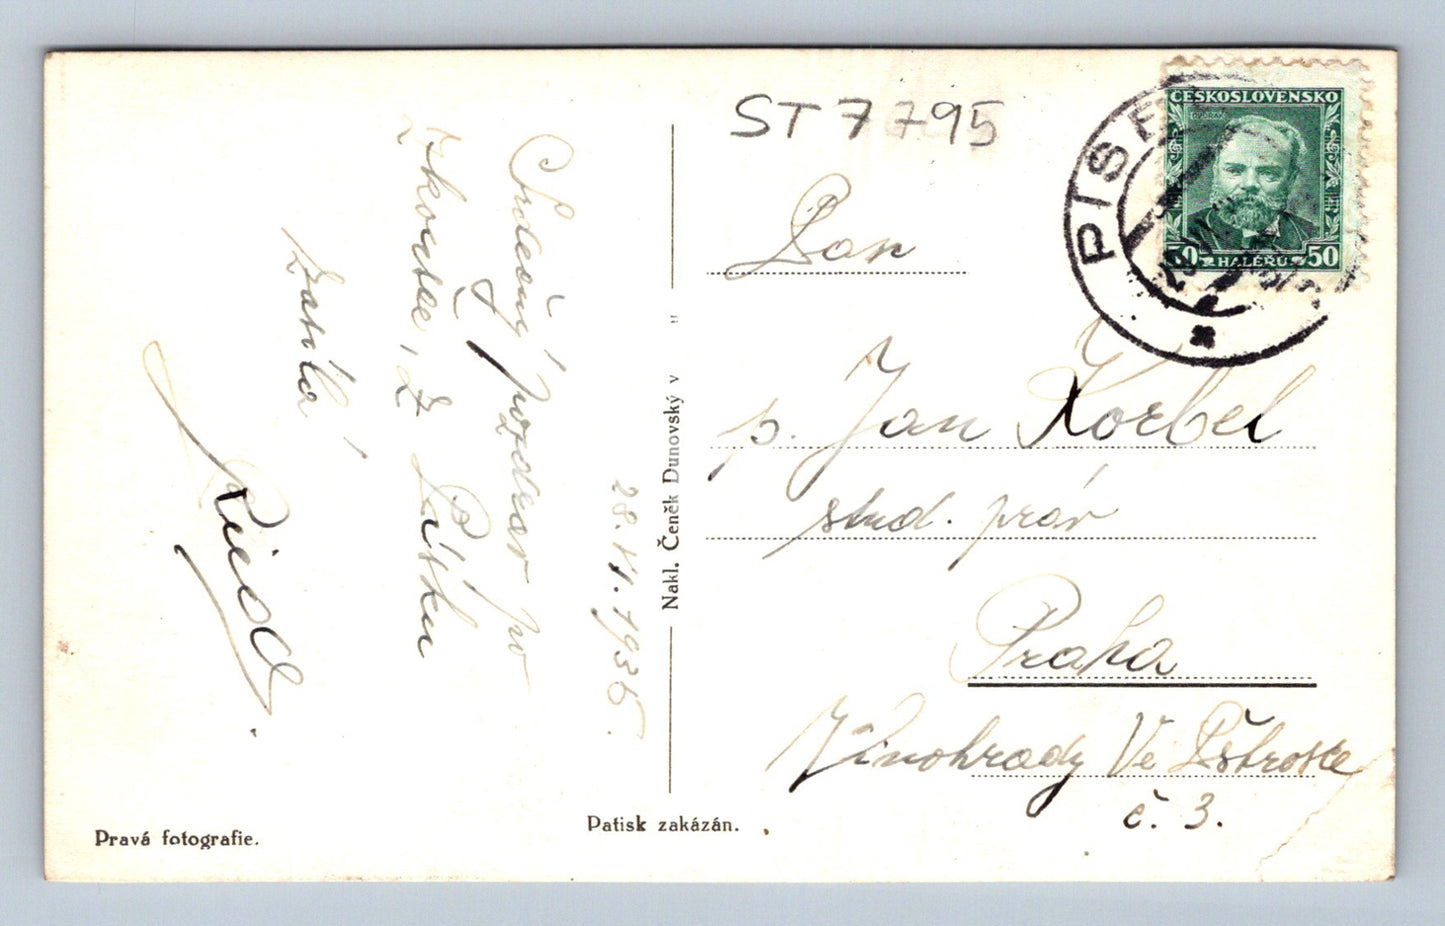 ST 7795
ČESKOSLOVENSKO
DVOŘÁK
50 HALÉŘŮ 50
PÍS
28.VI.1935.
Srdečný pozdrav po
zkoušce, z Písku
zasílá
Riedl.
Nakl. Čeněk Dunovský v
Pan
p. Jan Korbel
stud. práv
Praha
Vinohrady Ve Pštrosce
č. 3.
Pravá fotografie.
Patisk zakázán.